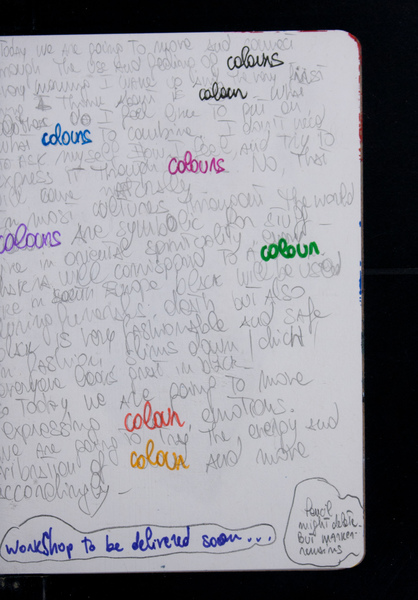 Today we are going to move and connect
through the use and feeling of colours
very morning I wake up and the very first
I think about is - what
colour
clothes do I feel like to put on
what colours to combine I don't need
to ask myself how I feel and try to
express it through colours No that
will come naturally
in most cultures throughout the world
colours are symbolic for ex
like in oriental spirituality a colour
chakra will correspond to a
like in south Europe black will be used
during funerals, death but also
black is very fashionable and safe
in fashion, slims down / chich /
everyone looks great in black -
so Today we are going to move
expressing colour, emotions.
we are going to try the energy and
vibration of colour and move
accordingly -
workshop to be delivered soon...
Pencil
might delete
but marker
remains